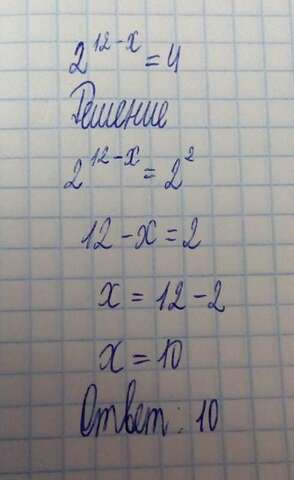 2^{12-x} = 4
Решение
2^{12-x} = 2^2
12 - x = 2
x = 12 - 2
x = 10
Ответ: 10